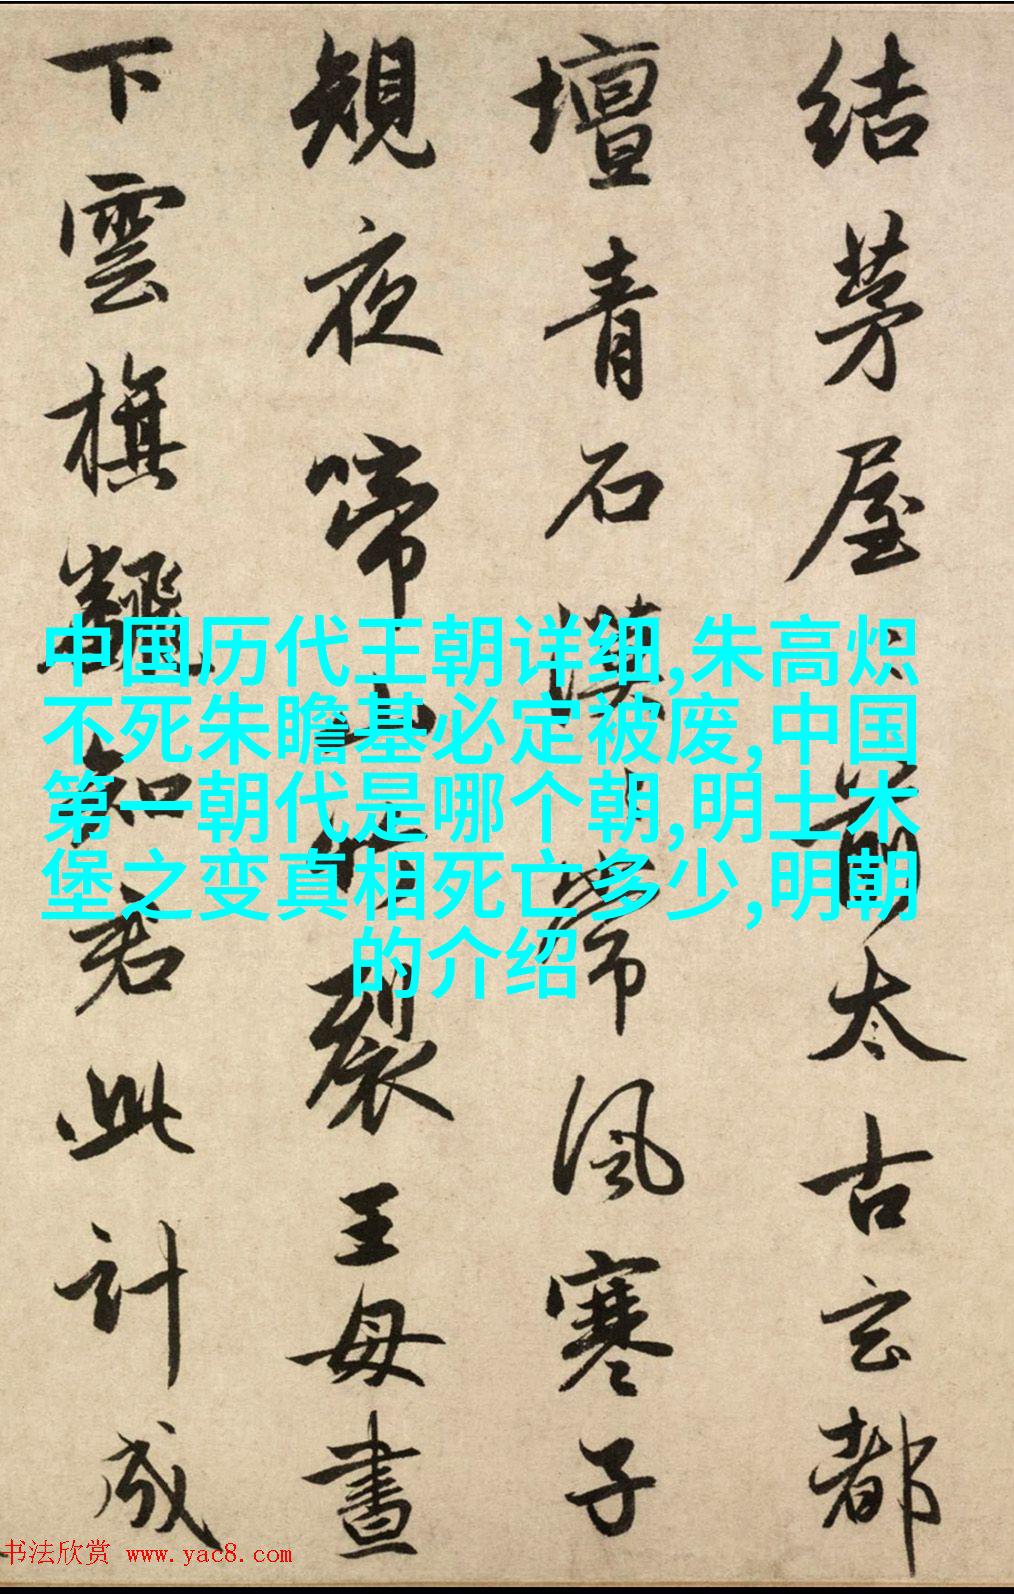 結茅屋〻前太古玄都
壇青石漠〻常風寒子
規夜啼山竹裂王母晝
下雲旗飜知君此計成
中国历代王朝详细,朱高炽
不死朱瞻基必定被废,中国
第一朝代是哪个朝,明土木
堡之变真相死亡多少,明朝
的介绍
书法欣赏 www.yac8.com